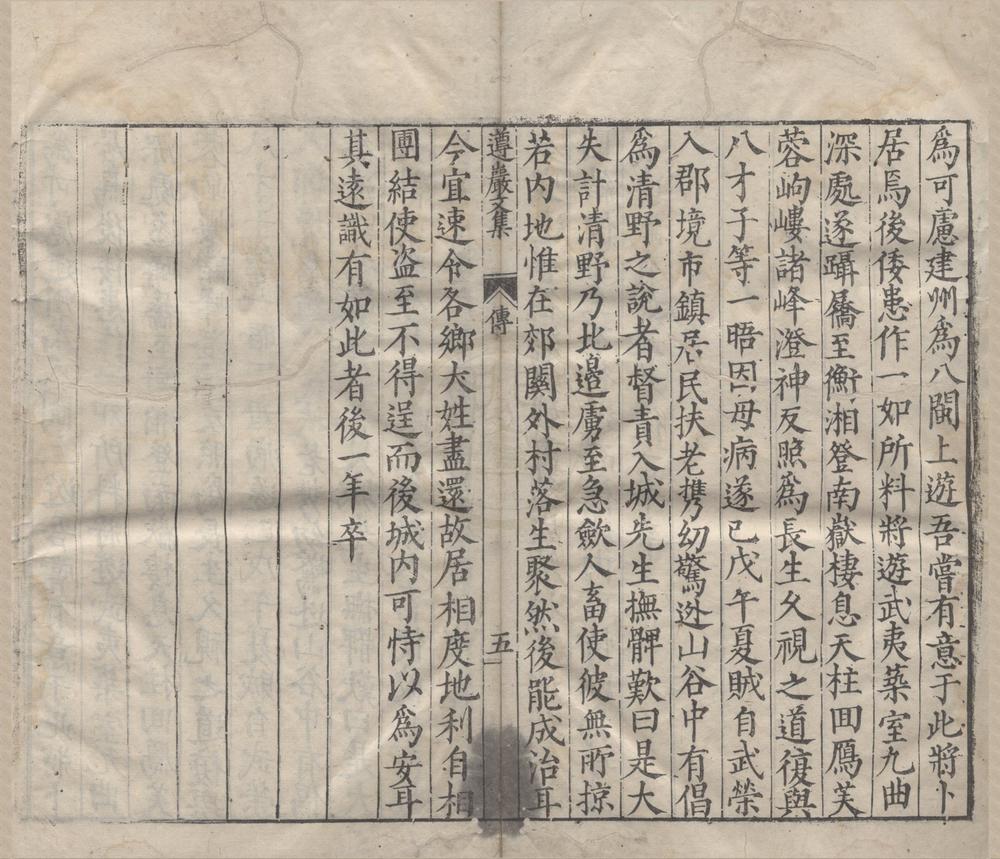 為可慮建州為八閩上遊吾嘗有意于此將卜
居焉後倭患作一如所料將遊武夷築室九曲
深處遂躡屩至衡湘登南嶽棲息天柱囬鴈芙
蓉岣嶁諸峰澄神反照為長生久視之道復與
八才子等一晤因母病遂已戊午夏賊自武榮
入郡境市鎮居民扶老携幼驚迯山谷中有倡
為清野之說者督責入城先生撫髀歎曰是大
失計清野乃北邉虜至急歛人畜使彼無所掠
若内地惟在郊關外村落生聚然後能成治耳
遵巖文集 傳 五
今宜速令各鄉大姓盡還故居相度地利自相
團結使盗至不得逞而後城内可恃以為安耳
其遠識有如此者後一年卒